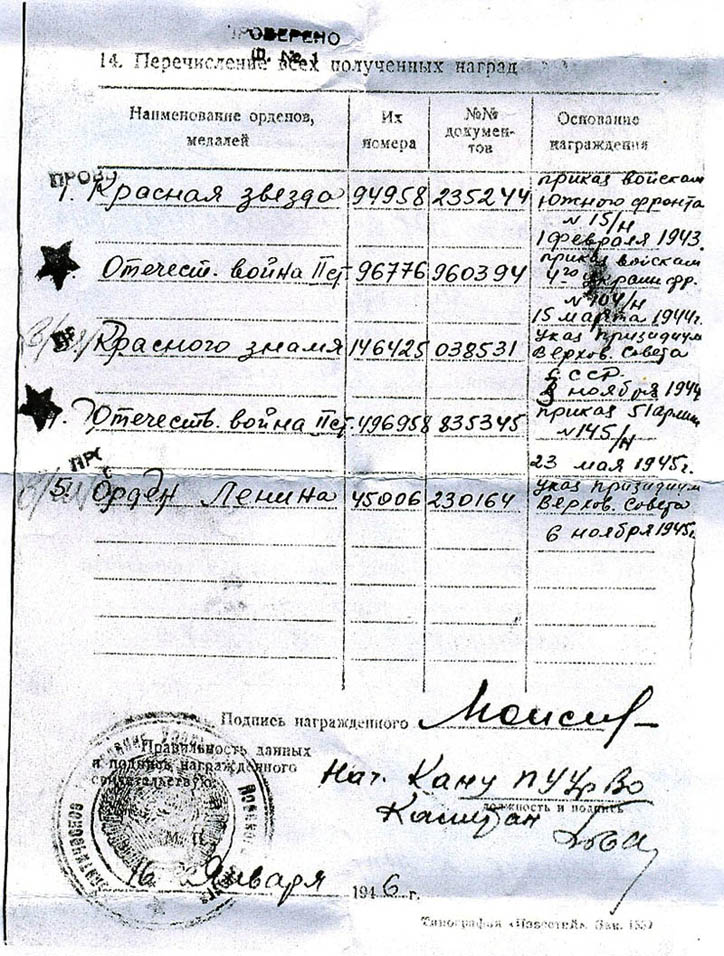 ПРОВЕРЕНО
14. Перечисление всех полученных наград
Наименование орденов, медалей
Их номера
№№ документов
Основание награждения
1. Красная звезда 94958 235244 приказ войскам Южного фронта N 15/н 1 февраля 1943.
Отечест. война II ст. 96776 960394 приказ войскам 4го украин фр. N 104/н 15 марта 1944г.
3. Красного знамя 146425 038531 указ призидиум Верхов. Совета СССР. 3 ноября 1944
4. Отечеств. война II ст. 496958 835345 приказ 51 армии N 145/н 23 мая 1945г.
5. Орден Ленина 45006 230164 указ призидиум Верхов. Совета 6 ноября 1945г.
Подпись награжденного
Правильность данных
и подпись награжденного
свидетельствую:
Нач.
должность и подпись
Капитан
М. П.
16 Января 1946 г.
Типография «Известий». Зак. 1557